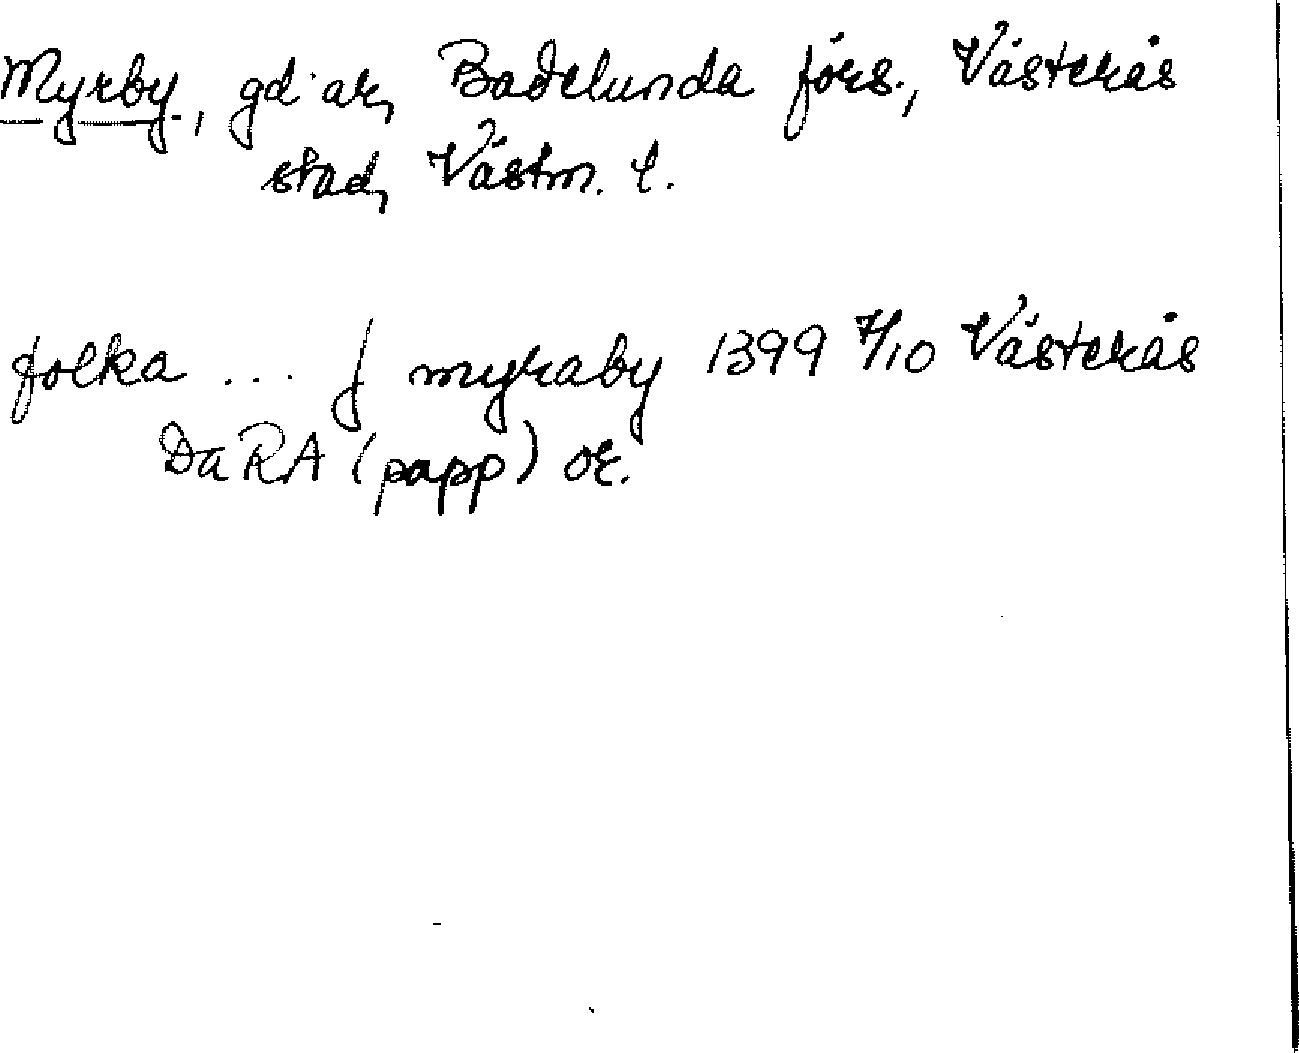 Myrby, gd·ar, Badelunda förs., Västerås
stad, Västm. l.
folka ... J myraby 1399 7/10 Västerås
DaRA (papp) or.